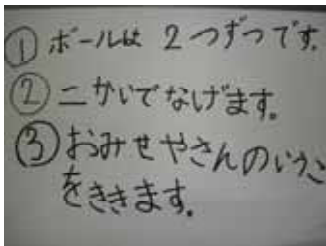 ① ボールは 2つずつです。
② ニかいでなげます。
③ おみせやさんのいうこ
をききます。